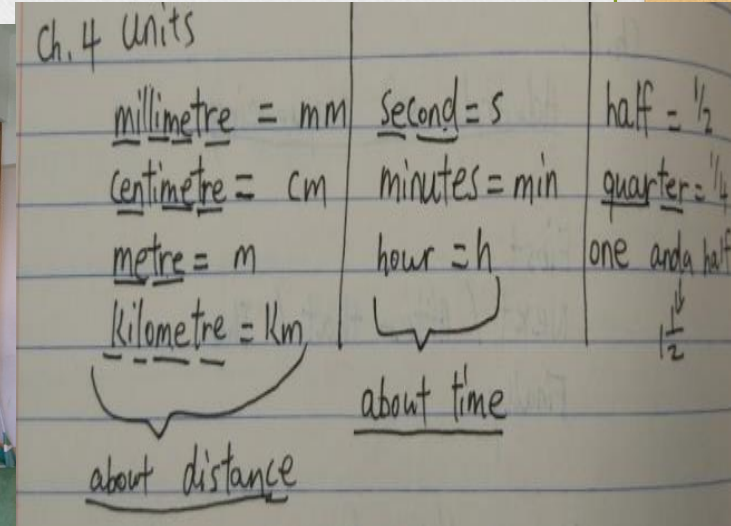 Ch. 4 Units
millimetre = mm
centimetre = cm
metre = m
kilometre = km
about distance
second = s
minutes = min
hour = h
about time
half = 1/2
quarter = 1/4
one and a half
1 1/2